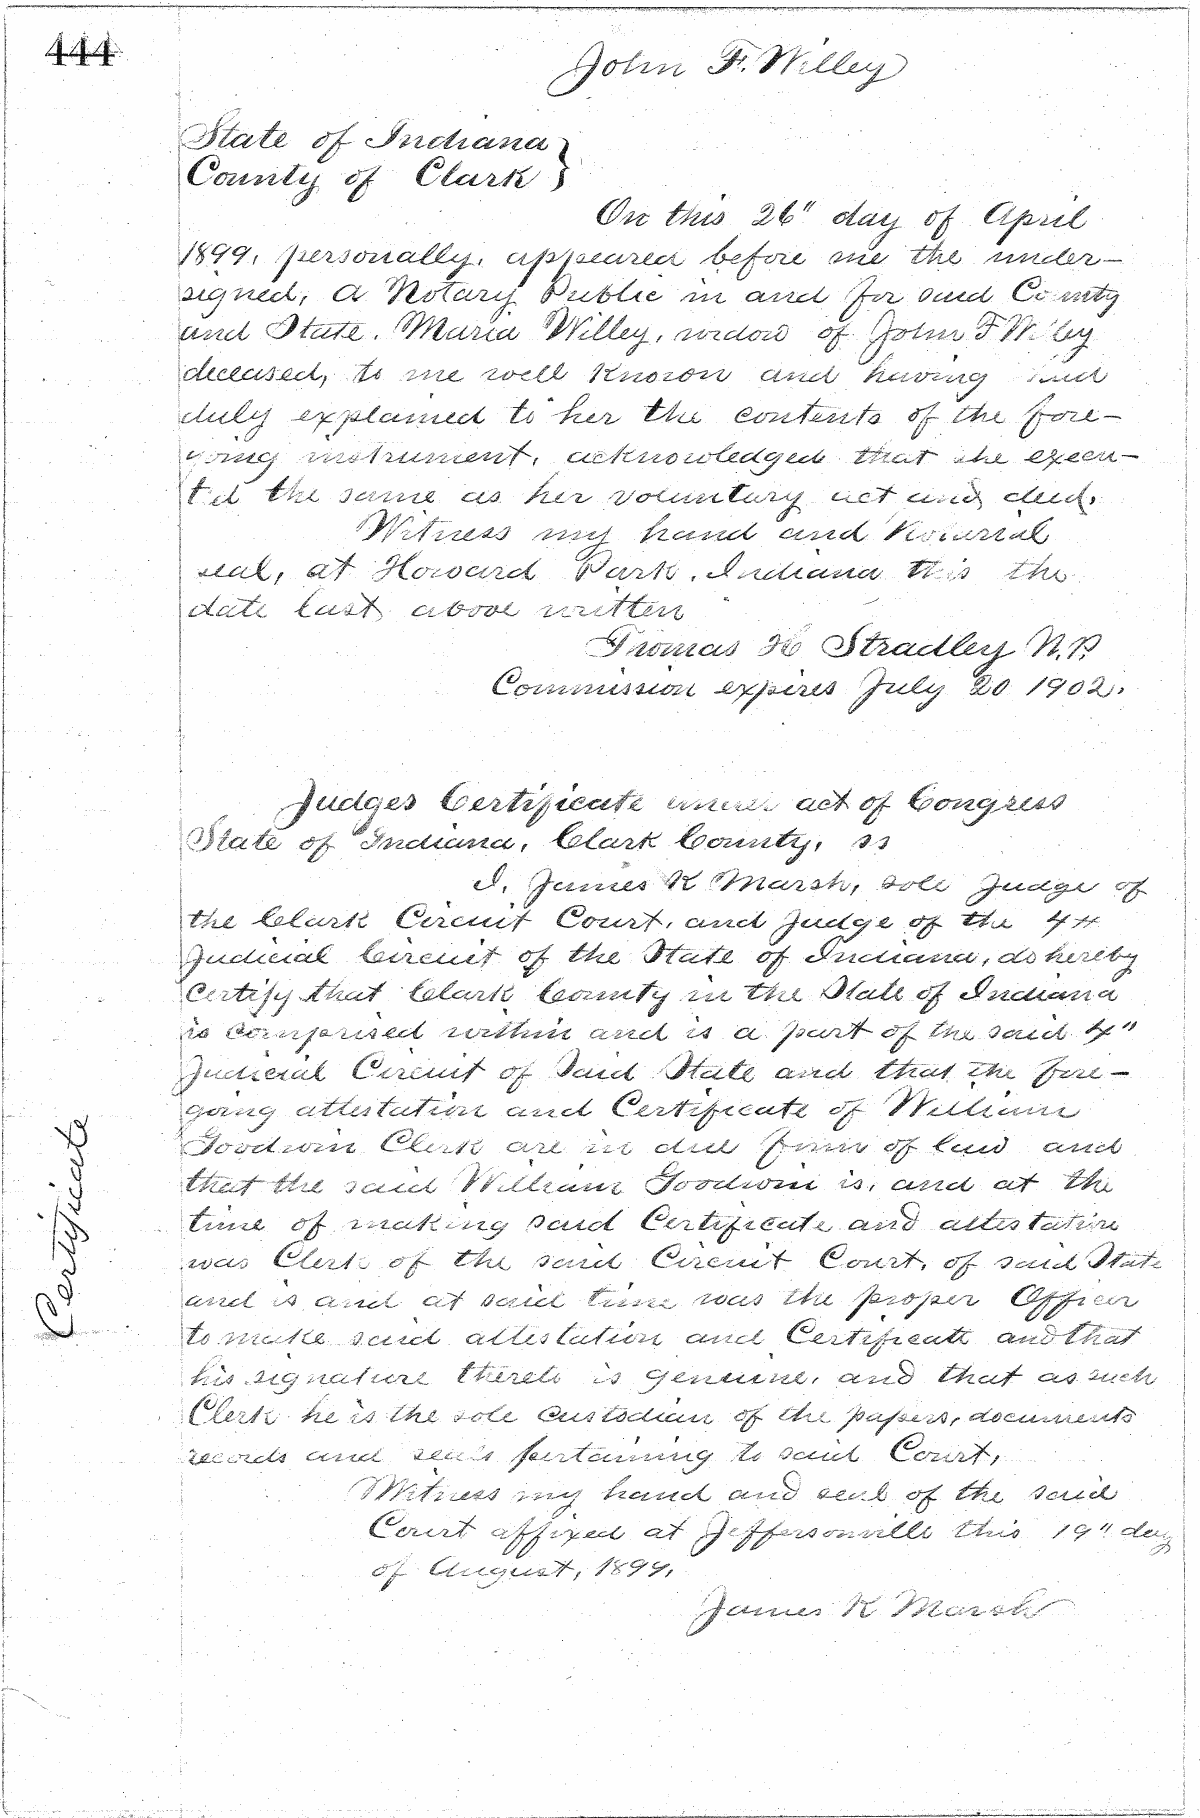 444
John F. Willey
State of Indiana }
County of Clark }
On this 26" day of April
1899, personally, appeared before me the under-
signed, a Notary Public in and for said County
and State. Maria Willey, widow of John F Willey
deceased, to me well known and having
duly explained to her the contents of the fore-
going instrument, acknowledged that she execu-
ted the same as her voluntary act and deed.
Witness my hand and Notarial
seal, at Howard Park, Indiana this the
date last above written
Thomas H Stradley N.P.
Commission expires July 20 1902.
Judges Certificate under act of Congress
State of Indiana, Clark County, ss
I, James K Marsh, sole Judge of
the Clark Circuit Court, and Judge of the 4th
Judicial Circuit of the State of Indiana, do hereby
certify that Clark County in the State of Indiana
is comprised within and is a part of the said 4"
Judicial Circuit of Said State and that the fore-
going attestation and Certificate of William
Goodwin Clerk are in due form of law and
that the said William Goodwin is, and at the
time of making said Certificate and attestation
was Clerk of the said Circuit Court, of said State
and is and at said time was the proper Officer
to make said attestation and Certificate and that
his signature thereto is genuine, and that as such
Clerk he is the sole custodian of the papers, documents
records and seals pertaining to said Court,
Witness my hand and seal of the said
Court affixed at Jeffersonville this 19" day
of August, 1899.
James K Marsh
Certificate